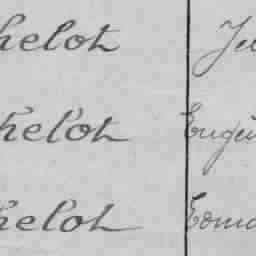 helot Ju
helot Eugè
helot Edmo